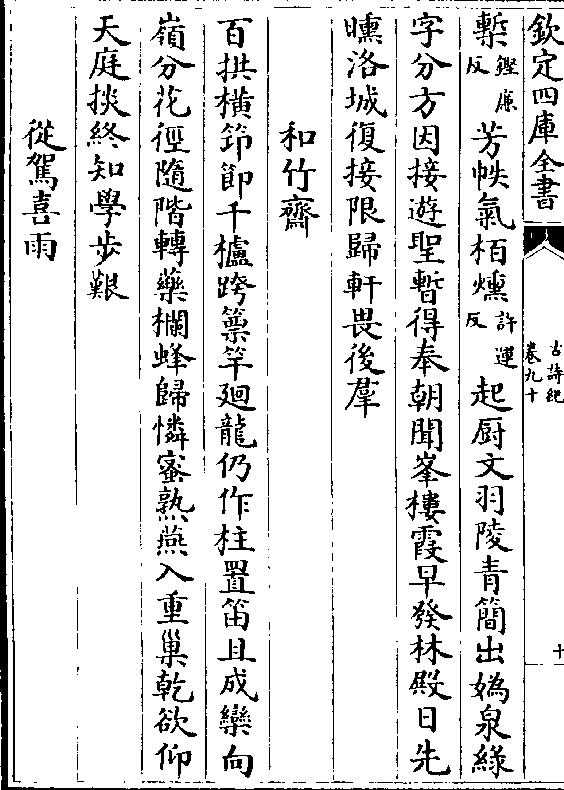 欽定四庫全書
古詩紀
卷九十
十
槧鏗廉反芳帙氣栢燻許運反起厨文羽陵青簡出嬀泉緑
字分方因接遊聖暫得奉朝聞峯樓霞早發林殿日先
曛洛城復接限歸軒畏後羣
和竹齋
百拱橫笻節千櫨跨篻竿廻龍仍作柱置笛且成欒向
嶺分花徑隨階轉藥欄蜂歸憐蜜熟燕入重巢乾欲仰
天庭掞終知學步艱
從駕喜雨